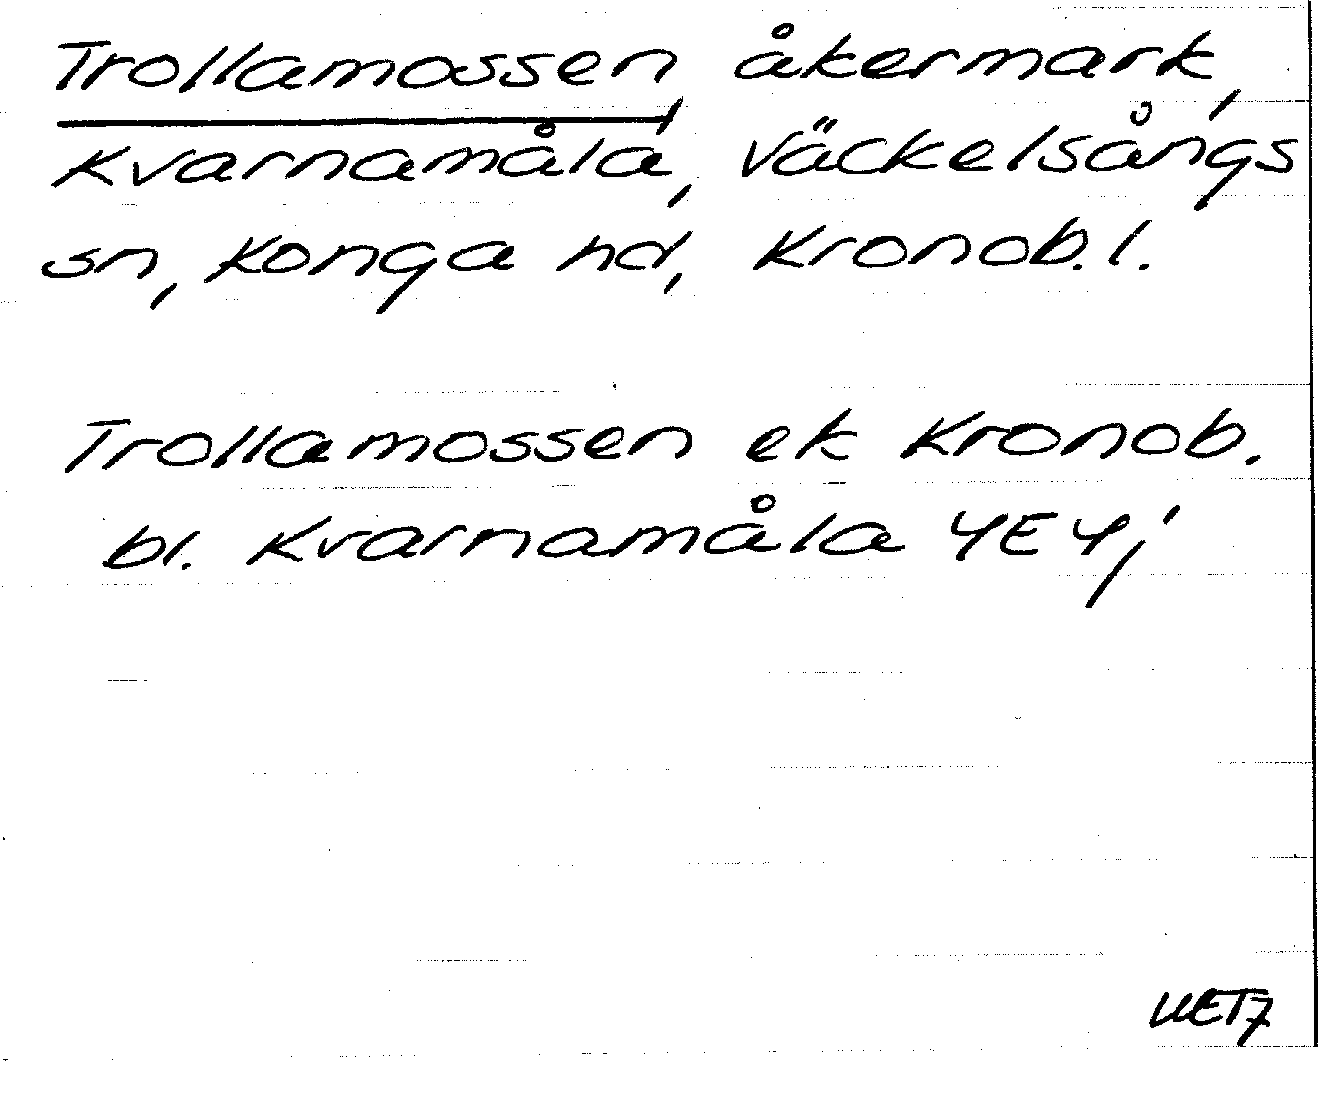 Trollamossen, åkermark,
Kvarnamåla, Väckelsångs
sn, Konga hd, Kronob. l.
Trollamossen ek Kronob.
bl. Kvarnamåla 4E4,